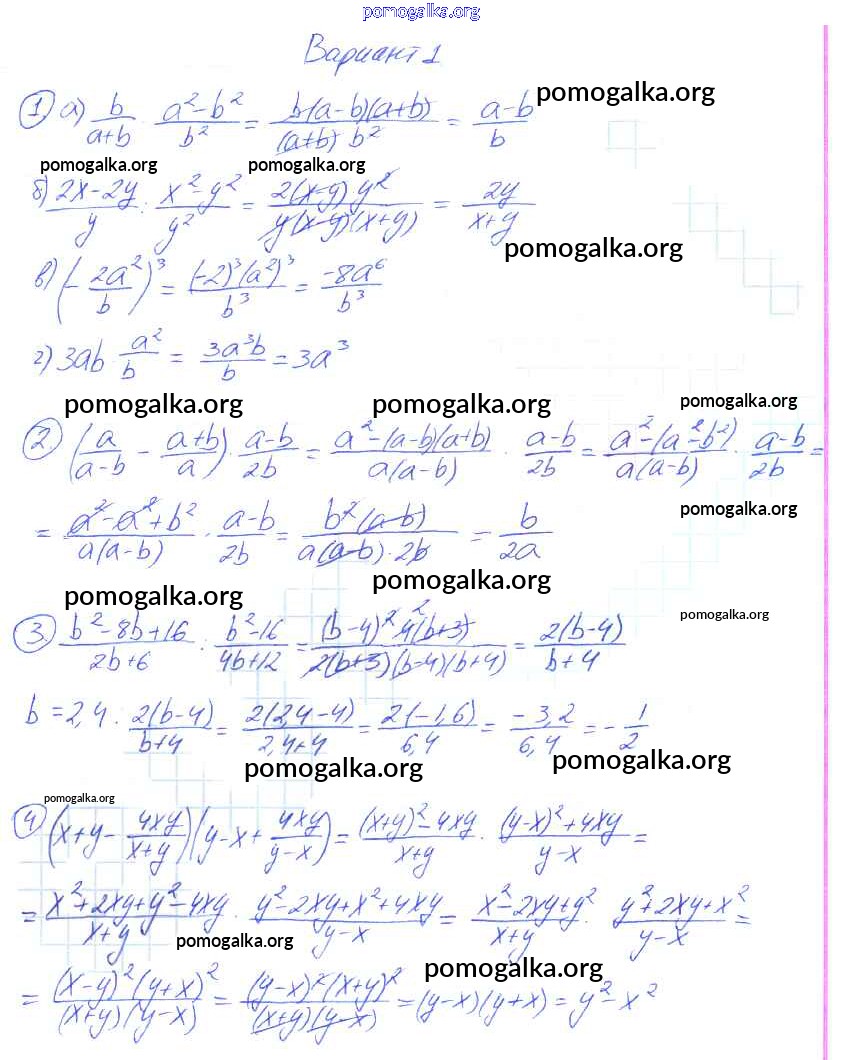 pomogalka.org
Вариант 1
① а) b/(a+b) · (a²-b²)/b² = b(a-b)(a+b)/((a+b) b²) = (a-b)/b pomogalka.org
pomogalka.org pomogalka.org
б) (2x-2y)/y : (x²-y²)/y² = 2(x-y) y²/(y(x-y)(x+y)) = 2y/(x+y)
pomogalka.org
в) (-2a²/b)³ = (-2)³(a²)³/b³ = -8a⁶/b³
г) 3ab · a²/b = 3a³b/b = 3a³
pomogalka.org pomogalka.org pomogalka.org
② (a/(a-b) - (a+b)/a) · (a-b)/2b = (a²-(a-b)(a+b))/(a(a-b)) · (a-b)/2b = (a²-(a²-b²))/(a(a-b)) · (a-b)/2b =
pomogalka.org
= (a²-a²+b²)/(a(a-b)) · (a-b)/2b = b²(a-b)/(a(a-b)·2b) = b/2a
pomogalka.org pomogalka.org
pomogalka.org
③ (b²-8b+16)/(2b+6) : (b²-16)/(4b+12) = (b-4)² 4(b+3)/(2(b+3)(b-4)(b+4)) = 2(b-4)/(b+4)
b = 2,4 : 2(b-4)/(b+4) = 2(2,4-4)/(2,4+4) = 2(-1,6)/6,4 = -3,2/6,4 = -1/2
pomogalka.org pomogalka.org
pomogalka.org
④ (x+y - 4xy/(x+y)) (y-x + 4xy/(y-x)) = ((x+y)²-4xy)/(x+y) · ((y-x)²+4xy)/(y-x) =
= (x²+2xy+y²-4xy)/(x+y) · (y²-2xy+x²+4xy)/(y-x) = (x²-2xy+y²)/(x+y) · (y²+2xy+x²)/(y-x) =
pomogalka.org
pomogalka.org
= (x-y)²(y+x)²/((x+y)(y-x)) = (y-x)²(x+y)²/((x+y)(y-x)) = (y-x)(y+x) = y²-x²